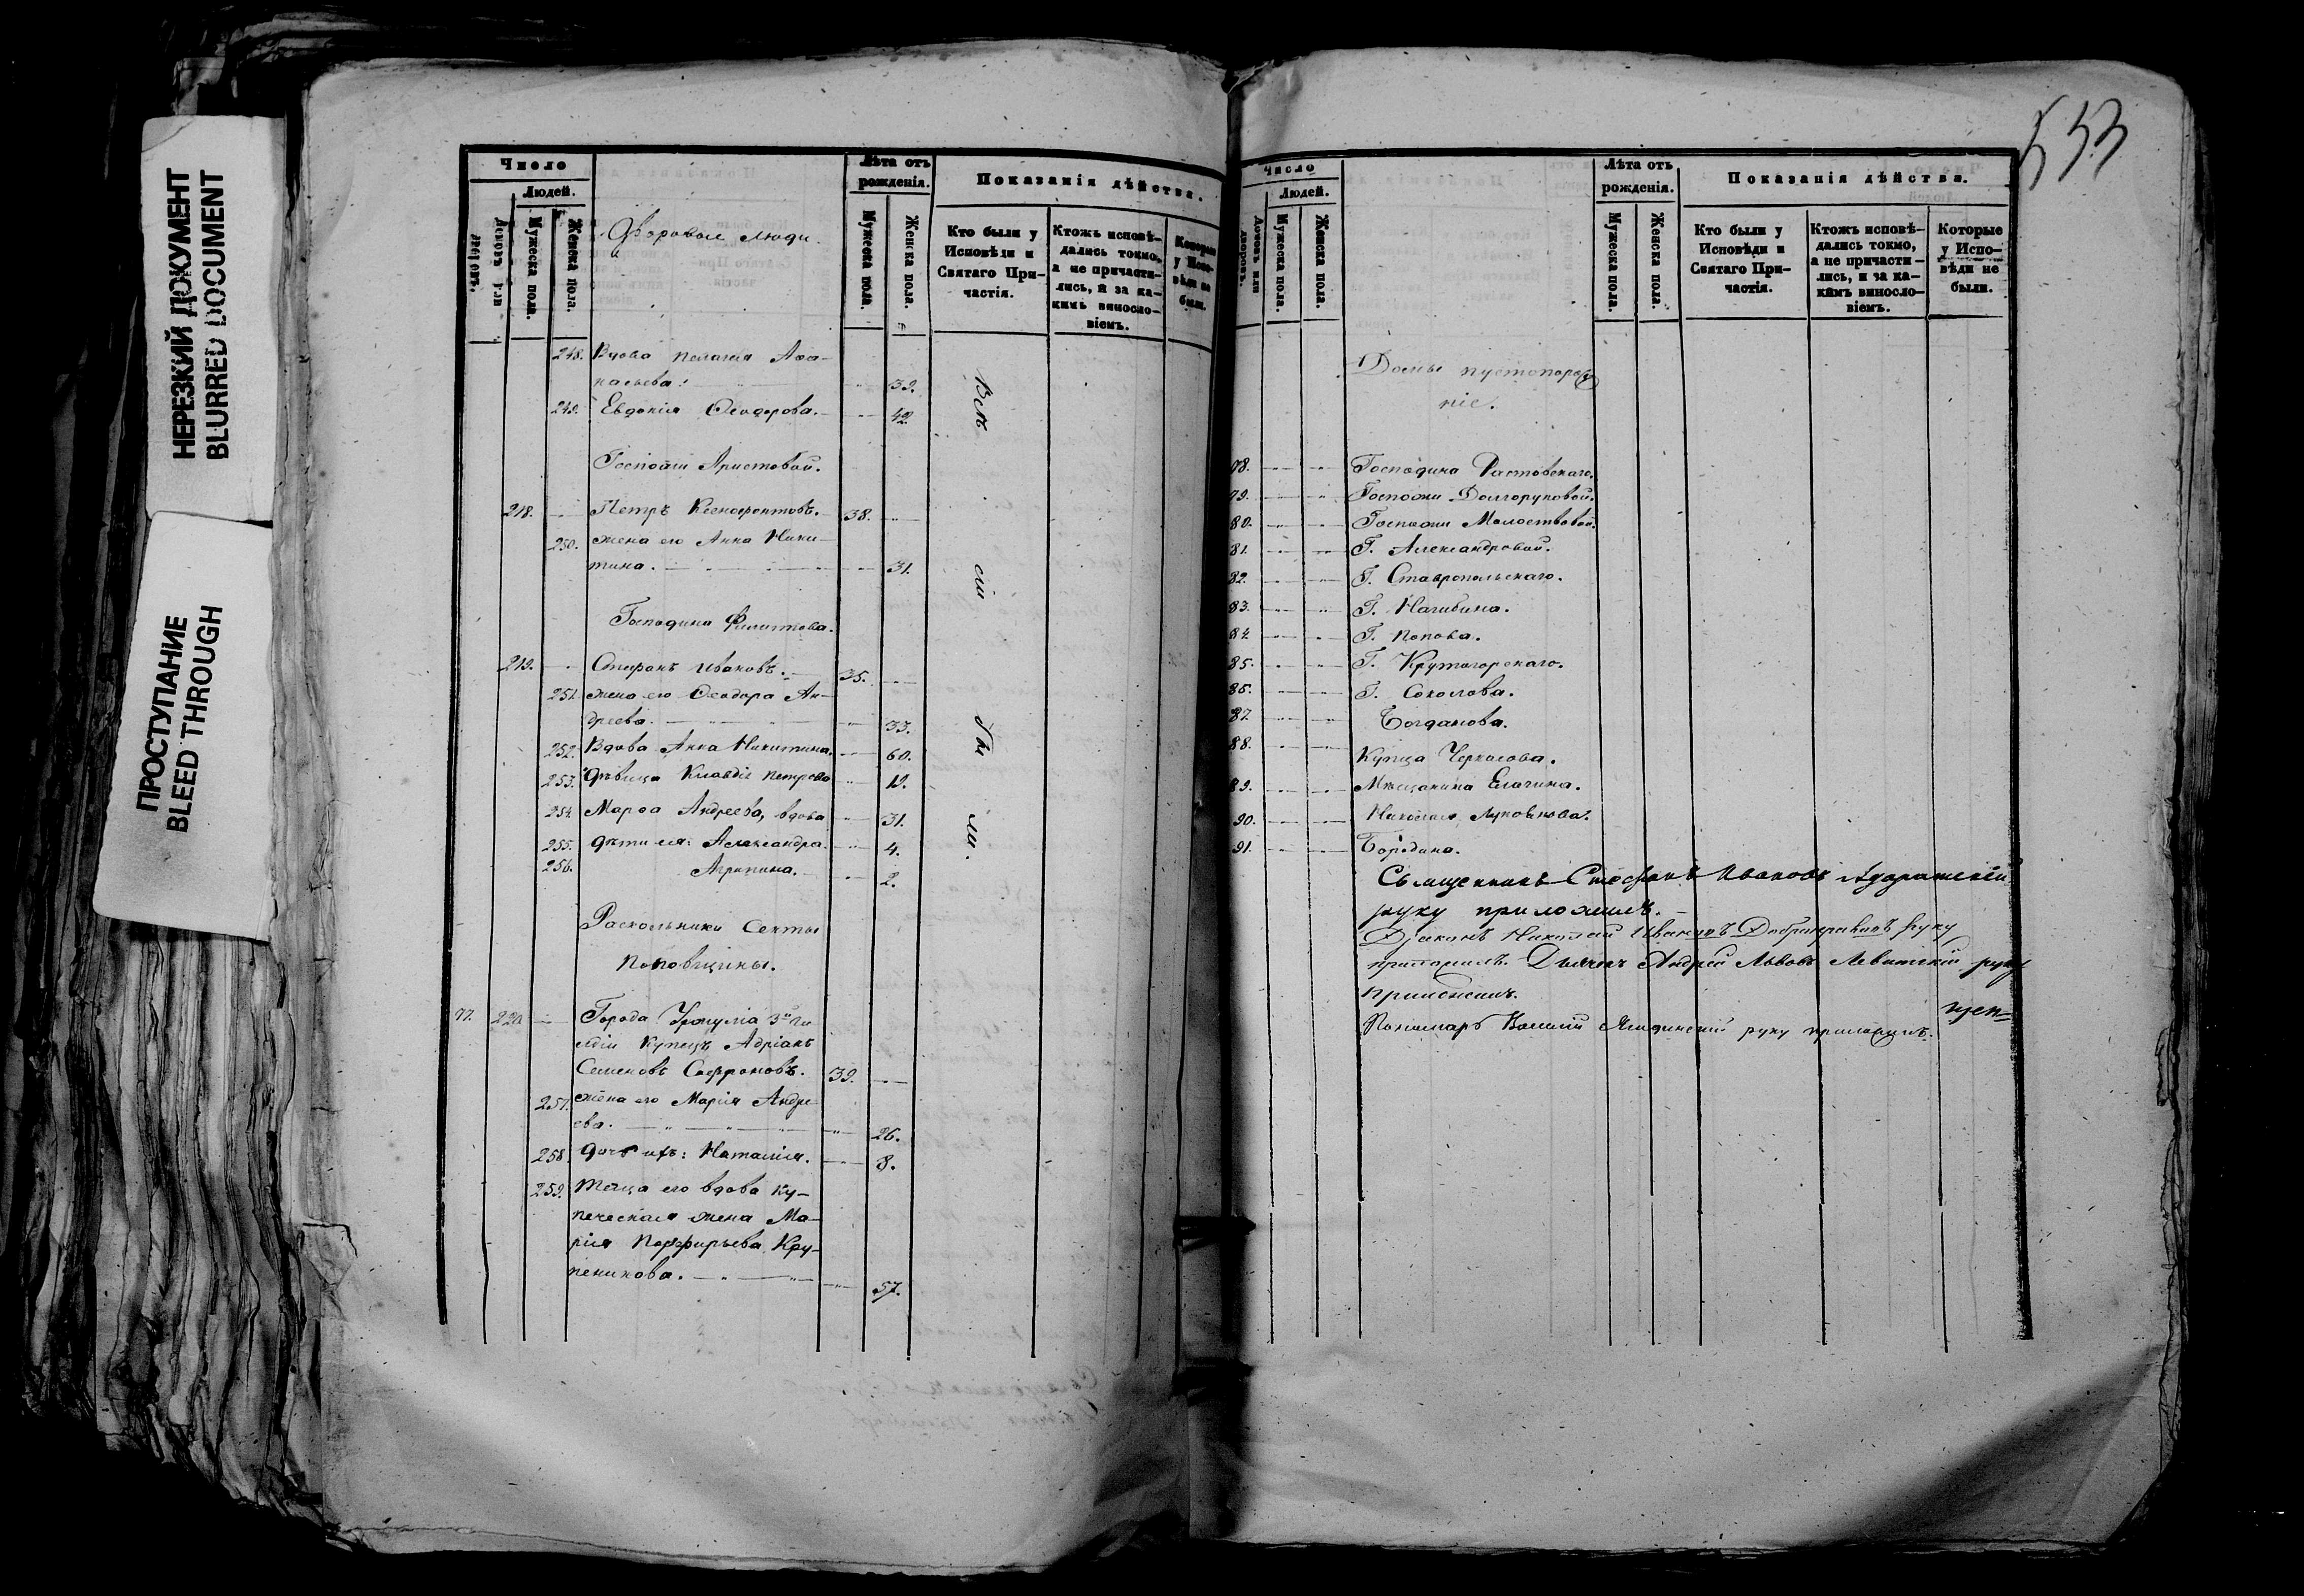 НЕРЕЗКИЙ ДОКУМЕНТ
BLURRED DOCUMENT
ПРОСТУПАНИЕ
BLEED THROUGH
Число
Людей.
Домовъ или дворовъ.
Мужеска пола.
Женска пола.
Дворовые люди.
Лѣта отъ рожденія.
Мужеска пола.
Женска пола.
Показанія дѣйства.
Кто были у Исповѣди и Святаго Причастія.
Ктожъ исповѣдались токмо, а не причастились, и за какимъ винословіемъ.
Которые у Исповѣди не были.
248. Вдова Пелагея Аѳа-
насьева. 39.
249. Евдокія Ѳеодорова. 42.
Госпожи Аристовой.
218. Петръ Ксенофонтовъ. 38.
250. жена его Анна Ники-
тина. 31.
Господина Филитова.
219. Стефанъ Ивановъ. 35.
251. жена его Ѳеодора Ан-
дреева. 33.
252. Вдова Анна Никитина. 60.
253. Дѣвица Клавдія Петрова 19.
254. Марѳа Андреева, вдова 31.
255. дѣти ея: Александра. 4.
256. Агрипина. 2.
Всѣ
были.
Раскольники Секты
Поповщины.
77. 220. Города Уржума 3й Ги
льдіи Купецъ Адріанъ
Семеновъ Сафроновъ. 39.
257. жена его Марія Андре
ева. 26.
258. дочь ихъ: Наталія. 8.
259. Теща его вдова Ку-
печеская жена Ма-
рія Порфирьева Кру-
пеникова. 57.
553
Число
Людей.
Домовъ или дворовъ.
Мужеска пола.
Женска пола.
Лѣта отъ рожденія.
Мужеска пола.
Женска пола.
Показанія дѣйства.
Кто были у Исповѣди и Святаго Причастія.
Ктожъ исповѣдались токмо, а не причастились, и за какимъ винословіемъ.
Которые у Исповѣди не были.
Домы пустопорож
ніе.
78. Господина Растовскаго.
79. Госпожи Долгоруковой.
80. Госпожи Молоствовой.
81. Г. Александровой.
82. Г. Ставропольскаго.
83. Г. Нагибина.
84. Г. Попова.
85. Г. Крутогорскаго.
86. Г. Соколова.
87. Богданова.
88. Купца Черкасова.
89. Мѣщанина Елагина.
90. Николая Луковникова.
91. Бородина.
Священникъ Стефанъ Ивановъ
руку приложилъ.
Діаконъ Николай Ивановъ Добронравовъ руку
приложилъ. Дьячекъ Андрей Львовъ Левитскій руку
приложилъ.
Пономарь руку приложилъ.